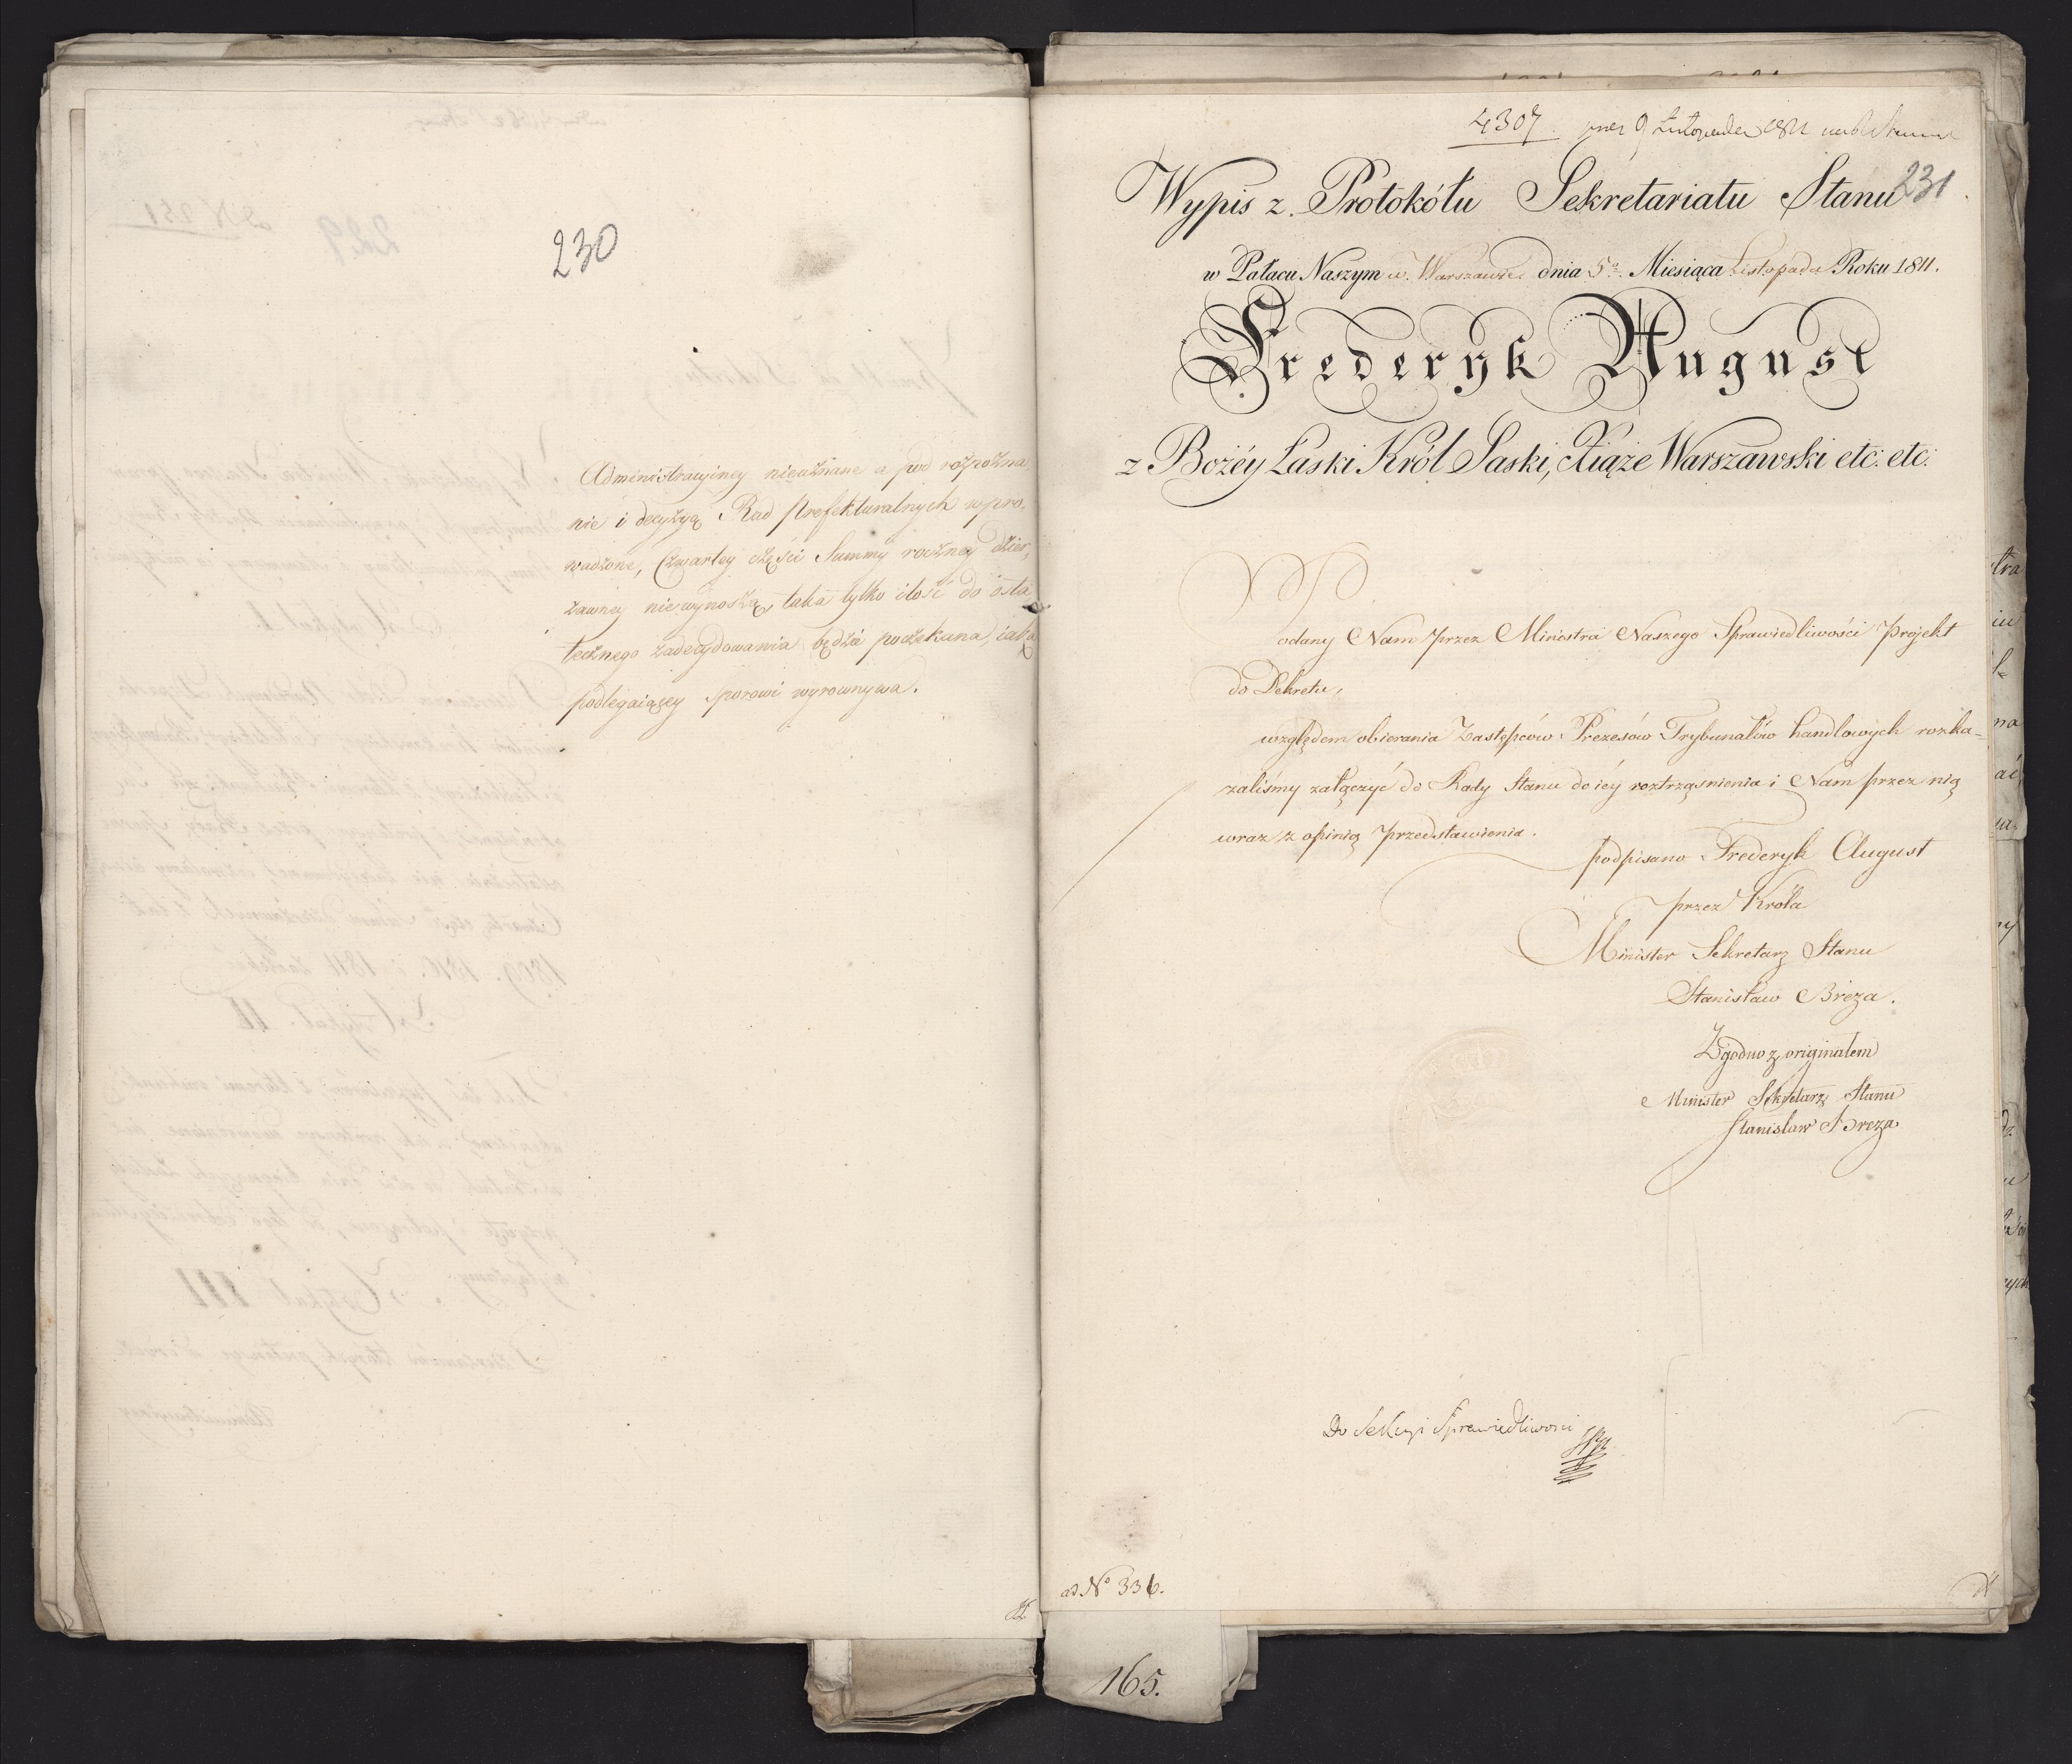 230
Administracyiney nieuznane a pod rozpozna,
nie i decyzyą Rad Prefekturalnych wpro,
wadzone, Czwartey części Summy roczney dzier,
żawney niewynoszą, taka tylko ilość do osta,
tecznego zadecydowania będzie poczekana, iaka
podlegaiącey sporowi wyrownywa.
4307 9 Listopada 1811
Wypis z Protokółu Sekretariatu Stanu 231
w Pałacu Naszym w Warszawie dnia 5º Miesiąca Listopada Roku 1811.
Frederyk August
z Bożéy Łaski Król Saski, Xiąże Warszawski etc: etc:
Podany Nam przez Ministra Naszego Sprawiedliwości Projekt
do Dekretu,
względem obierania Zastępców Prezesów Trybunałów handlowych rozka-
zaliśmy załączyć do Rady Stanu do iéy roztrząsnienia i Nam przez nią
wraz z opinią przedstawienia.
podpisano Frederyk August
przez Króla
Minister Sekretarz Stanu
Stanisław Breza.
Zgodno z originałem
Minister Sekretarz Stanu
Stanisław Breza
Do Sekcyi Sprawiedliwosci
ad Nº 336.
165.